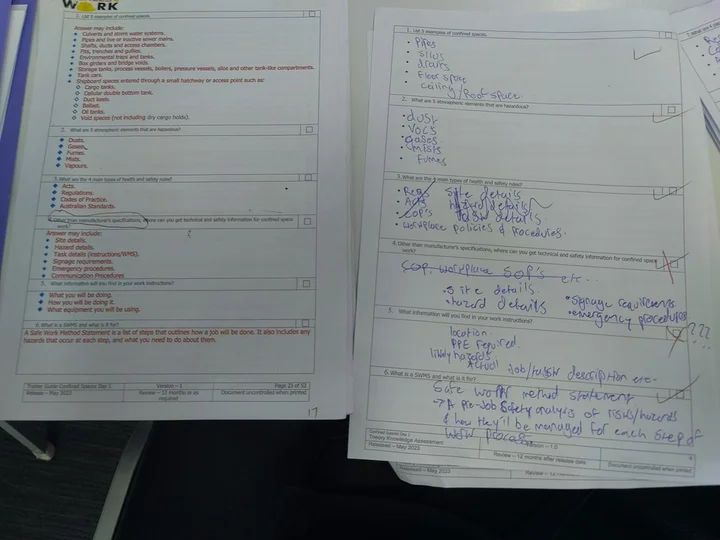 WORK
1. List 5 examples of confined spaces.
Answer may include:
Culverts and storm water systems.
Pipes and live or inactive sewer mains.
Shafts, ducts and access chambers.
Pits, trenches and gullies.
Environmental traps and tanks.
Box girders and bridge voids.
Storage tanks, process vessels, boilers, pressure vessels, silos and other tank-like compartments.
Tank cars.
Shipboard spaces entered through a small hatchway or access point such as:
Cargo tanks.
Cellular double bottom tank.
Duct keels.
Ballast
Oil tanks.
Void spaces (not including dry cargo holds).
2. What are 5 atmospheric elements that are hazardous?
Dusts.
Gases.
Fumes.
Mists.
Vapours.
3. What are the 4 main types of health and safety rules?
Acts.
Regulations.
Codes of Practice.
Australian Standards.
4. Other than manufacturer's specifications, where can you get technical and safety information for confined space
work?
Answer may include:
Site details.
Hazard details.
Task details (instructions/WMS).
Signage requirements.
Emergency procedures.
Communication Procedures
5. What information will you find in your work instructions?
What you will be doing.
How you will be doing it.
What equipment you will be using.
6. What is a SWMS and what is it for?
A Safe Work Method Statement is a list of steps that outlines how a job will be done. It also includes any
hazards that occur at each step, and what you need to do about them.
Trainer Guide Confined Spaces Day 1
Version – 1
Page 21 of 52
Release – May 2023
Review – 12 months or as
required
Document uncontrolled when printed
17
1. List 5 examples of confined spaces.
• Pipes
• silos
• drains
• Floor space
ceiling/Roof space
2. What are 5 atmospheric elements that are hazardous?
• dust
• VOCs
• Gases
• mists
• Fumes
3. What are the 4 main types of health and safety rules?
• Regs site details
• Acts hazard details
• COP's task details
• workplace policies & procedures.
4. Other than manufacturer's specifications, where can you get technical and safety information for confined space
work?
COP. workplace SOP's etc...
• Site details. • Signage requirements
• hazard details • emergency procedures
5. What information will you find in your work instructions?
???
location.
PPE required.
likely hazards
Actual job/task description etc.
6. What is a SWMS and what is it for?
Safe work method statement
→ A Pre-Job Safety analysis of risks/hazards
& how they'll be managed for each step of
work process
Confined Spaces Day 1
Theory Knowledge Assessment
Version – 1.0
4
Released – May 2023
Review – 12 months after release date
Document uncontrolled when printed
Released – May 2023
Review – 12 months after release date
Document uncontrolled when printed